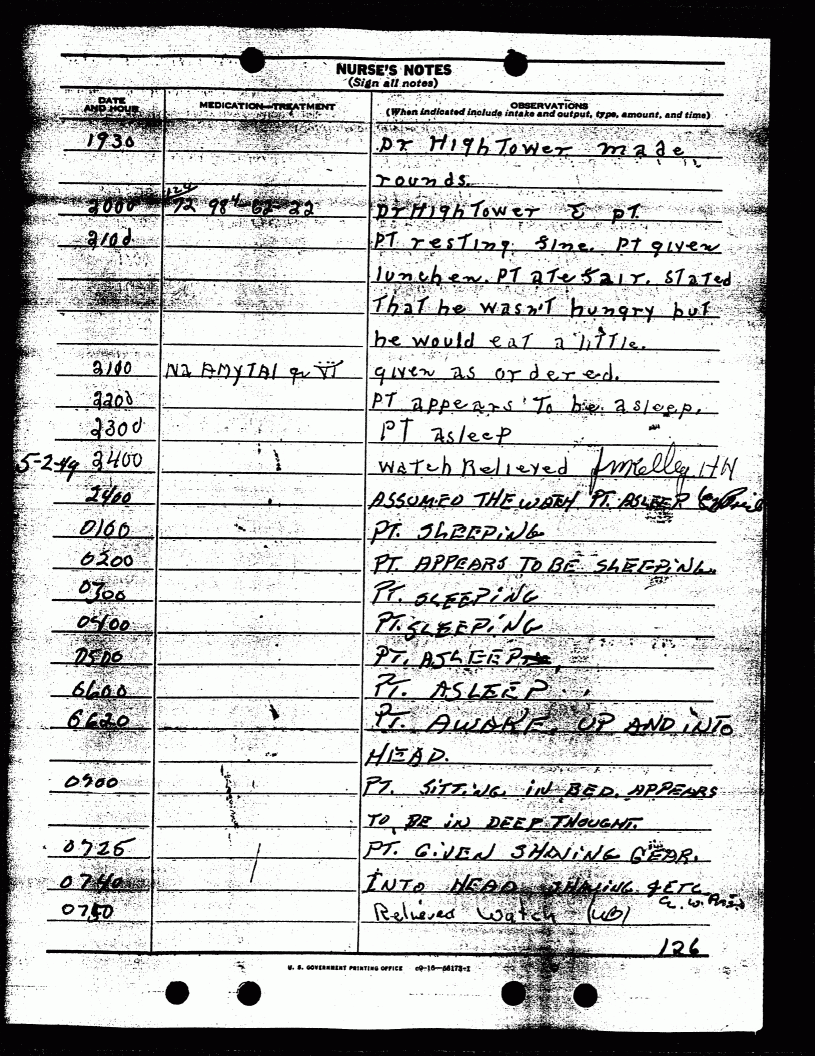 NURSE'S NOTES
(Sign all notes)
DATE AND HOUR MEDICATION—TREATMENT OBSERVATIONS
(When indicated include intake and output, type, amount, and time)
1930 Dr HighTower made
rounds.
2000 DrHighTower c̄ pT.
2100 PT resting fine. PT given
lunchen. PT ate fair. Stated
That he wasn't hungry but
he would eat a little.
2100 Na AmyTAl gr VI given as ordered.
2200 PT appears To be asleep.
2300 PT asleep
5-2-49 2400 Watch Relieved
2400 ASSUMED THE WATH PT. ASLEEP
0100 PT. SLEEPING
0200 PT. APPEARS TO BE SLEEPING.
0300 PT. SLEEPING
0400 PT. SLEEPING
0500 PT. ASLEEP
0600 PT. ASLEEP
0620 PT. AWAKE, UP AND INTO
HEAD.
0700 PT. SITTING IN BED. APPEARS
TO BE IN DEEP THOUGHT.
0725 PT. GIVEN SHAVING GEAR.
0740 INTO HEAD SHAVING &ETC
0750 Relieved Watch
126
U. S. GOVERNMENT PRINTING OFFICE